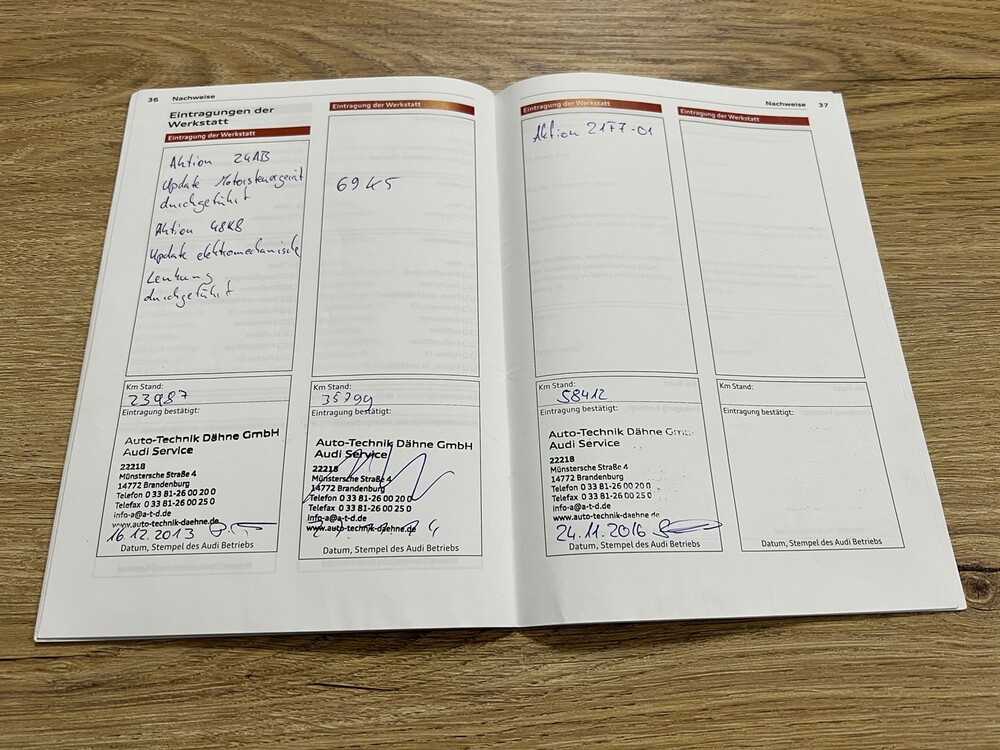 36 Nachweise
Eintragungen der
Werkstatt
Eintragung der Werkstatt
Aktion 24AB
Update Motorsteuergerät
durchgeführt
Aktion 48K8
Update elektromechanische
Lenkung
durchgeführt
Km Stand:
23987
Eintragung bestätigt:
Auto-Technik Dähne GmbH
Audi Service
22218
Münstersche Straße 4
14772 Brandenburg
Telefon 0 33 81-26 00 20 0
Telefax 0 33 81-26 00 25 0
info-a@a-t-d.de
www.auto-technik-daehne.de
16.12.2013
Datum, Stempel des Audi Betriebs
Eintragung der Werkstatt
69K5
Km Stand:
35799
Eintragung bestätigt:
Auto-Technik Dähne GmbH
Audi Service
22218
Münstersche Straße 4
14772 Brandenburg
Telefon 0 33 81-26 00 20 0
Telefax 0 33 81-26 00 25 0
info-a@a-t-d.de
www.auto-technik-daehne.de
Datum, Stempel des Audi Betriebs
Nachweise 37
Eintragung der Werkstatt
Aktion 21F7-01
Km Stand:
58412
Eintragung bestätigt:
Auto-Technik Dähne GmbH
Audi Service
22218
Münstersche Straße 4
14772 Brandenburg
Telefon 0 33 81-26 00 20 0
Telefax 0 33 81-26 00 25 0
info-a@a-t-d.de
www.auto-technik-daehne.de
24.11.2016
Datum, Stempel des Audi Betriebs
Eintragung der Werkstatt
Km Stand:
Eintragung bestätigt:
Datum, Stempel des Audi Betriebs